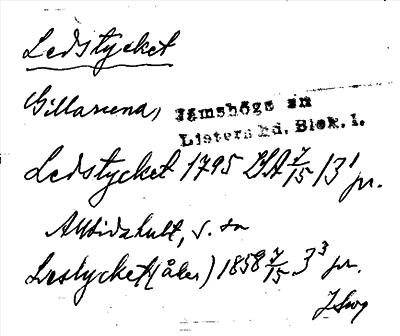 Ledstycket
Gillarena, Jämshögs sn
Listers hd. Blek. l.
Ledstycket 1795 LSA 7/15 13¹ pr.
Alltidhult, s. sn
Lestycket (åker) 1858 7/15 3³ pr.